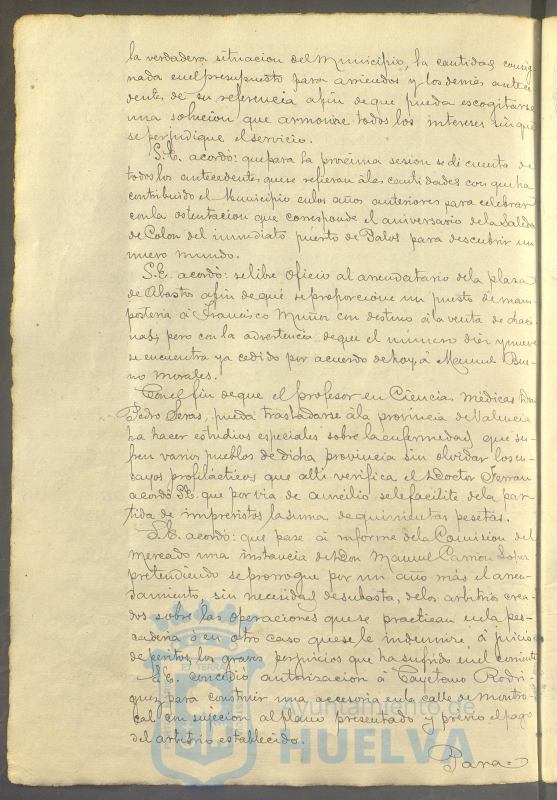 la verdadera situacion del Municipio, la cantidad consig-
nada en el presupuesto para arriendos y los demás antece-
dentes de su referencia afin de que pueda escogitarse
una solucion que armonice todos los intereses sin que
se perjudique el servicio.
S.E. acordó: que para la procsima sesion se dé cuenta de
todos los antecedentes que se refieran á las cantidades con que ha
contribuido el Municipio en los años anteriores para celebrar
con la ostentacion que corresponde el aniversario de la Salida
de Colon del inmediato puerto de Palos para descubrir un
nuevo mundo.
S.E. acordó: se libre oficio al arrendatario de la plaza
de Abastos afin de que se proporcione un puesto de mam-
posteria á Francisco Muñoz con destino á la venta de chaci-
nas, pero con la advertencia de que el número diez y nueve
se encuentra ya cedido por acuerdo de hoy, á Manuel Bue-
no Morales.
Con el fin de que el profesor en Ciencias médicas Don
Pedro Seras, pueda trasladarse á la provincia de Valencia
ha hacer estudios especiales sobre la enfermedad que su-
fren varios pueblos de dicha provincia sin olvidar los en-
sayos profilácticos que alli verifica el Doctor Ferran
acordó S.E. que por via de aucilio se le facilite de la par-
tida de imprevistos la suma de quinientas pesetas.
S.E. acordó: que pase á informe de la Comision del
mercado una instancia de Don Manuel Carrion Lopez
pretendiendo se prorrogue por un año más el arren-
damiento, sin necesidad de subasta, de los arbitrios crea-
dos sobre las operaciones que se practican en la pes-
caderia ó en otro caso que se le indemnice á juicio
de peritos, los graves perjuicios que ha sufrido en el corriente
S.E. concedió autorizacion á Cayetano Rodri-
guez para construir una accesoria en la calle de Montro-
cal con sujecion al plano presentado y previo el pago
del arbitrio establecido.
Para=
Ayuntamiento de
HUELVA